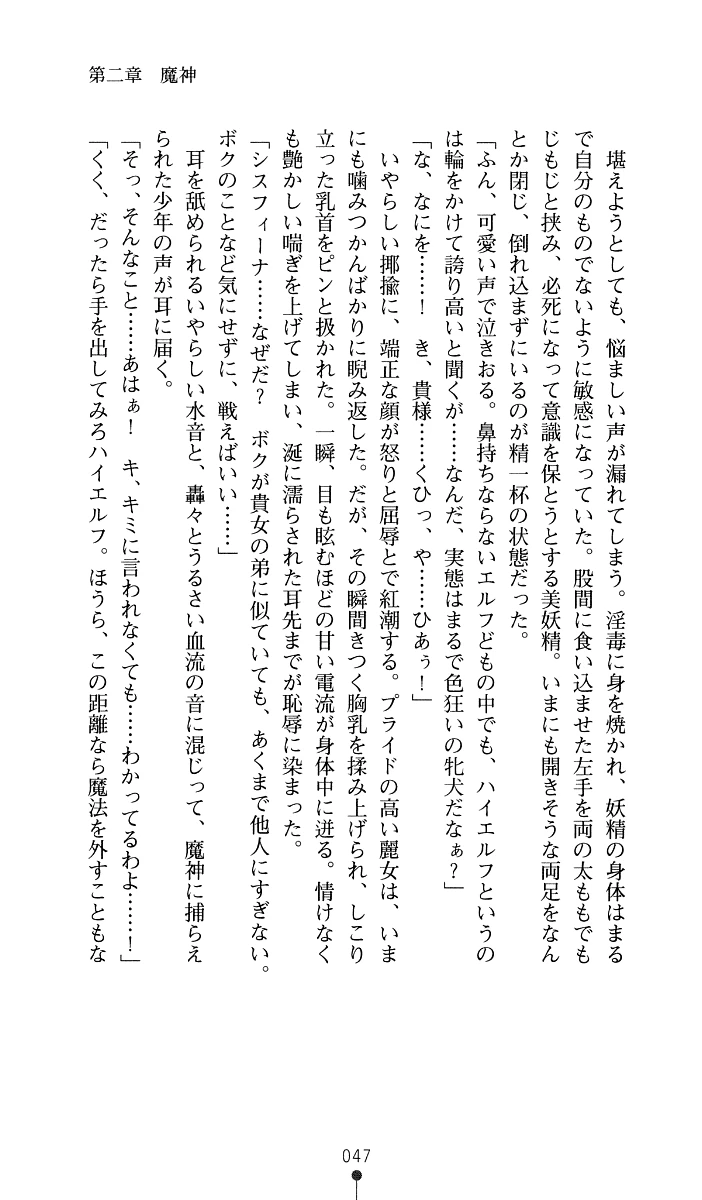 第二章　魔神
　堪えようとしても、悩ましい声が漏れてしまう。淫毒に身を焼かれ、妖精の身体はまる
で自分のものでないように敏感になっていた。股間に食い込ませた左手を両の太ももでも
じもじと挟み、必死になって意識を保とうとする美妖精。いまにも開きそうな両足をなん
とか閉じ、倒れ込まずにいるのが精一杯の状態だった。
「ふん、可愛い声で泣きおる。鼻持ちならないエルフどもの中でも、ハイエルフというの
は輪をかけて誇り高いと聞くが……なんだ、実態はまるで色狂いの牝犬だなぁ？」
「な、なにを……！　き、貴様……くひっ、や……ひあぅ！」
　いやらしい揶揄に、端正な顔が怒りと屈辱とで紅潮する。プライドの高い麗女は、いま
にも噛みつかんばかりに睨み返した。だが、その瞬間きつく胸乳を揉み上げられ、しこり
立った乳首をピンと扱かれた。一瞬、目も眩むほどの甘い電流が身体中に迸る。情けなく
も艶かしい喘ぎを上げてしまい、涎に濡らされた耳先までが恥辱に染まった。
「シスフィーナ……なぜだ？　ボクが貴女の弟に似ていても、あくまで他人にすぎない。
ボクのことなど気にせずに、戦えばいい……」
　耳を舐められるいやらしい水音と、轟々とうるさい血流の音に混じって、魔神に捕らえ
られた少年の声が耳に届く。
「そっ、そんなこと……あはぁ！　キ、キミに言われなくても……わかってるわよ……！」
「くく、だったら手を出してみろハイエルフ。ほうら、この距離なら魔法を外すこともな
047